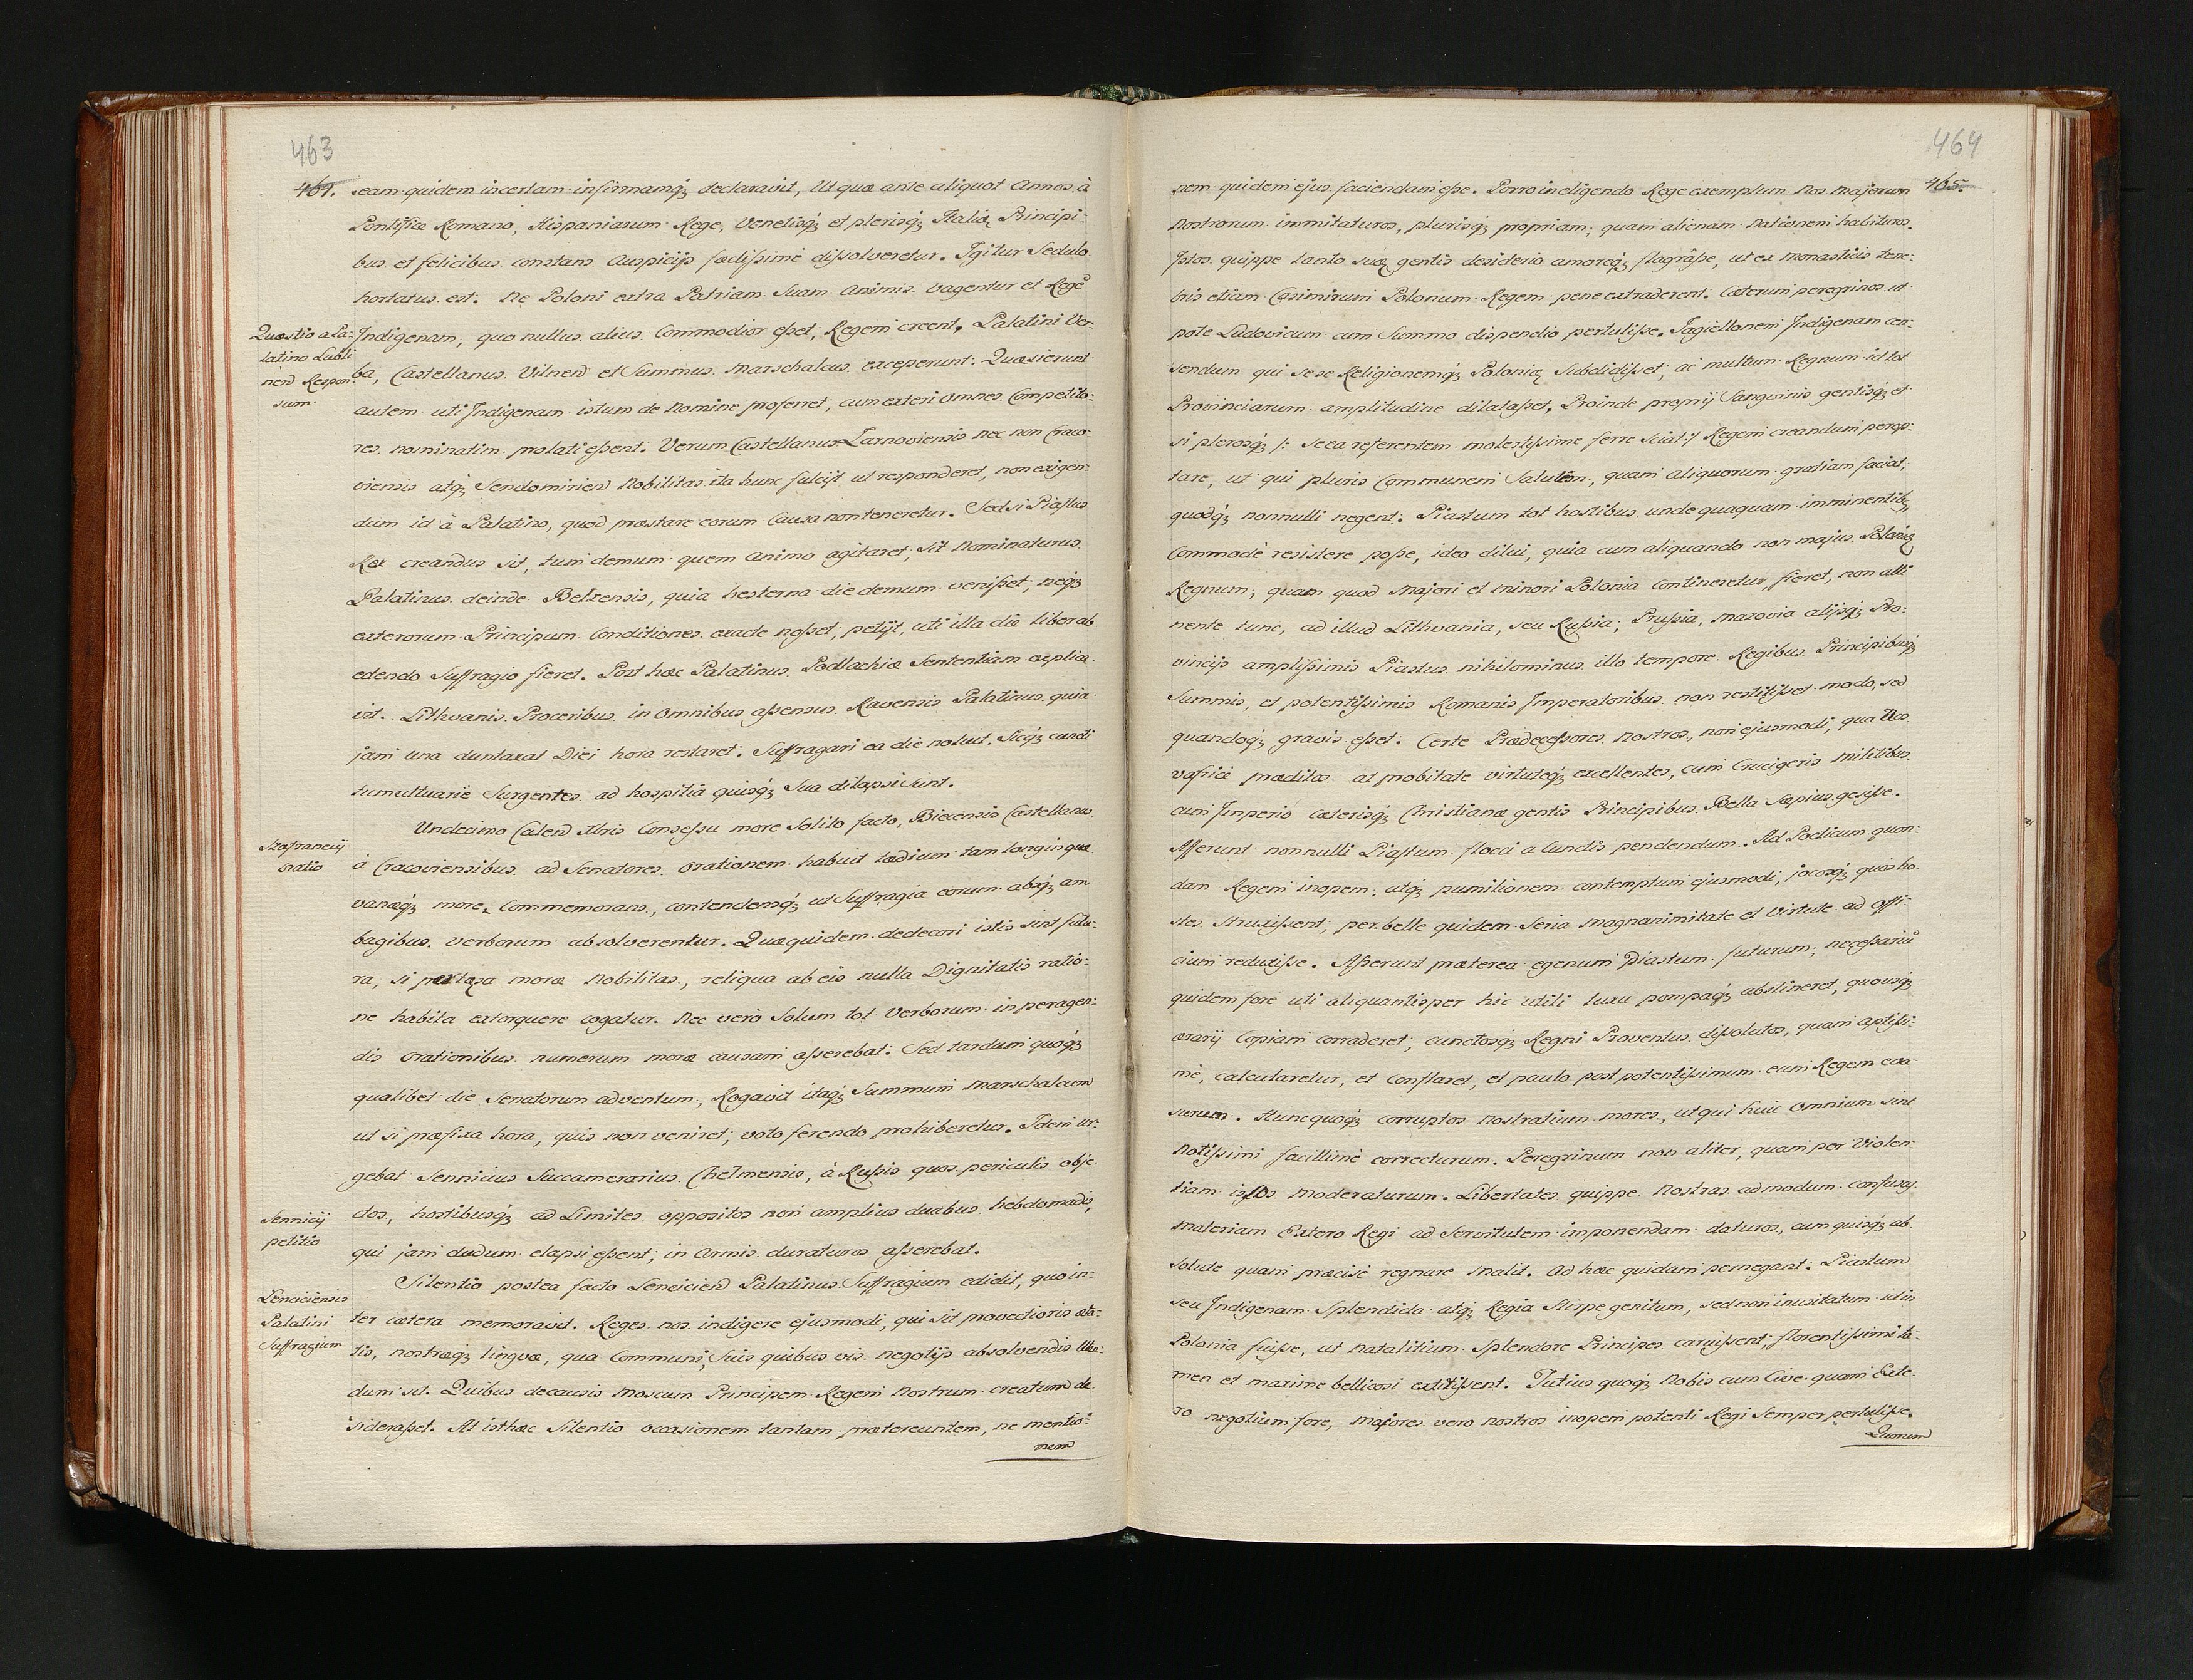 463
464.
eam quidem incertam infirmamq́ȝ declaravit, Ut quæ ante aliquot Annos à
Pontifice Romano, Hispaniarum Rege, Venetisq́ȝ et plerisq́ȝ Italiæ Principi:
bus et felicibus constans Auspicijs fædissimè dissolveretur. Igitur Sedulo
hortatus est: Ne Poloni extra Patriam Suam Animis vagentur et Regē
Quæstio a Pa:
latino Lubli
nen Respon
sum.
Indigenam, quo nullus alius Commodior esset, Regem creent. Palatini Ver:
ba, Castellanus Vilnen et Summus Marschalcus exceperunt: Quæsierunt
autem uti Indigenam istum de Nomine proferret, cum exteri omnes Competito:
res nominatim prolati essent. Verum Castellanus Tarnoviensis nec non Craco:
viensis atq́ȝ Sendomirien Nobilitas ita hunc fulcijt ut responderet, non exigen:
dum id à Palatino, quod præstare eorum Causa non teneretur. Sed si Piastus
Rex creandus sit, tum demum quem Animo agitaret, sit Nominaturus.
Palatinus deinde Belzensis, quia hesterna die demum venisset, neq́ȝ
exterorum Principum Conditiones exacte nosset, petijt, uti illa die liber ab
edendo Suffragio fieret. Post hæc Palatinus Podlachiæ Sententiam explica:
vit. Lithvanis Proceribus in Omnibus assensus Ravensis Palatinus quia
jam una duntaxat Diei hora restaret: Suffragari ea die noluit. Sicq́ȝ cuncti
tumultuarie Surgentes ad hospitia quisq́ȝ Sua dilapsi sunt.
Szafrancij
oratio
Undecimo Calend Xbris Consessu more Solito facto, Biecensis Castellanus
à Cracoviensibus ad Senatores orationem habuit tædium tam longinquæ
vanæq́ȝ moræ Commemorans, contendensq́ȝ ut Suffragia eorum absq́ȝ am
bagibus verborum absolverentur. Quæ quidem dedecori istis sint futu:
ra, si pertæsa moræ Nobilitas, reliqua ab eis nulla Dignitatis ratio:
ne habita extorquere cogatur. Nec vero Solum tot Verborum in peragen:
dis Orationibus numerum moræ causam asserebat: Sed tardum quoq́ȝ
qualibet die Senatorum adventum, Rogavit itaq́ȝ Summum Marschalcum
ut si præfixa hora, quis non veniret, voto ferendo prohiberetur. Idem ur:
gebat Sennicius Succamerarius Chelmensis, à Russis quos periculis obje:
Sennicij
petitio
ctos, hostibusq́ȝ ad Limites oppositos non amplius duabus hebdomadis,
qui jam dudum elapsi essent, in Armis duraturos asserebat.
Lenciciensis
Palatini
Suffragium
Silentio postea facto Lencicien Palatinus Suffragium edidit, quo in:
ter cætera memoravit. Reges nos indigere ejusmodi, qui sit provectioris æta:
tis, nostræq́ȝ lingvæ, qua Communi, Suis quibus vis negotijs absolvendis
dum sit. Quibus de causis Moscum Principem Regem Nostrum creatum de
siderasset. At isthæc Silentio occasionem tantam prætereuntem, ne mentio:
nem
464
465.
nem quidem ejus faciendam esse. Porro in eligendo Rege exemplum Nos Majorum
Nostrorum immitaturos, plurisq́ȝ propriam, quam alienam Nationem habituros.
Istos quippe tanto suæ gentis desiderio amoreq́ȝ flagrâsse, ut ex monasticis tene:
bris etiam Casimirum Polonum Regem pene extraderent. Cæterum peregrinos ut
pote Ludovicum cum Summo dispendio pertulisse. Jagiellonem Indigenam cen:
sendum qui sese Religionemq́ȝ Poloniæ Subdidisset, ac multum Regnum id tot
Provinciarum amplitudine dilatasset. Proinde proprij Sangvinis gentisq́ȝ et
si plerosq́ȝ /: se ea referentem molestissime ferre sciat :/ Regem creandum perop:
tare, ut qui pluris Communem Salutem, quam aliquorum gratiam faciat,
quodq́ȝ nonnulli negent: Piastum tot hostibus undequaquam imminentibȝ
Commodè resistere posse, ideo dilui, quia cum aliquando non majus Poloniæ
Regnum, quam quod Majori et minori Polonia Contineretur, fieret, non atti
nente tunc, ad illud Lithvania, seu Russia, Prussia, Mazovia alijsq́ȝ Pro:
vincijs amplissimis Piastus nihilominus illo tempore Regibus Principibusq́ȝ
Summis, et potentissimis Romanis Imperatoribus non restitisset modo, sed
quandoq́ȝ gravis esset: Certe Prædecessores Nostros, non ejusmodi, qua Nos
vafricie præditos at probitate virtuteq́ȝ excellentes, cum Crucigeris militibus
cum Imperio cæterisq́ȝ Christianæ gentis Principibus Bella sæpius gesisse.
Afferunt nonnulli Piastum flocci a Cunctis pendendum. Ad Podicum quon:
dam Regem inopem, atq́ȝ pumilionem contemptum ejusmodi, jocosq́ȝ quos ho:
stes struxissent, perbelle quidem seria magnanimitate et Virtute ad offi:
cium reduxisse. Asserunt præterea egenum Piastum futurum, necessariū
quidem fore uti aliquantisper hic utili luxu pompaq́ȝ abstineret, quousq́ȝ
ærarij Copiam corraderet, cunctosq́ȝ Regni Proventus dissolutos, quam aptissi:
mè, calcularetur, et Conflaret, et paulo post potentissimum eum Regem eva
surum. Hunc quoq́ȝ corruptos Nostratium mores, ut qui huic Omnium sint
Notissimi facillimè correcturum. Peregrinum non aliter, quam per Violen:
tiam istos moderaturum. Libertates quippe Nostras admodum confusas
Materiam Extero Regi ad Servitutem imponendam daturos, cum quisq́ȝ ab
solute quam præcisè regnare Malit. Ad hæc quidam pernegant: Piastum
seu Indigenam Splendida atq́ȝ Regia Stirpe genitum, sed non inusitatum id in
Polonia fuisse, ut Natalitium Splendore Principes caruissent, florentissimi ta:
men et maxime bellicosi extitissent. Tutius quoq́ȝ Nobis cum Cive quam Exte:
ro negotium fore, Majores vero nostros inopem potenti Regi semper pertulisse.
Quorum